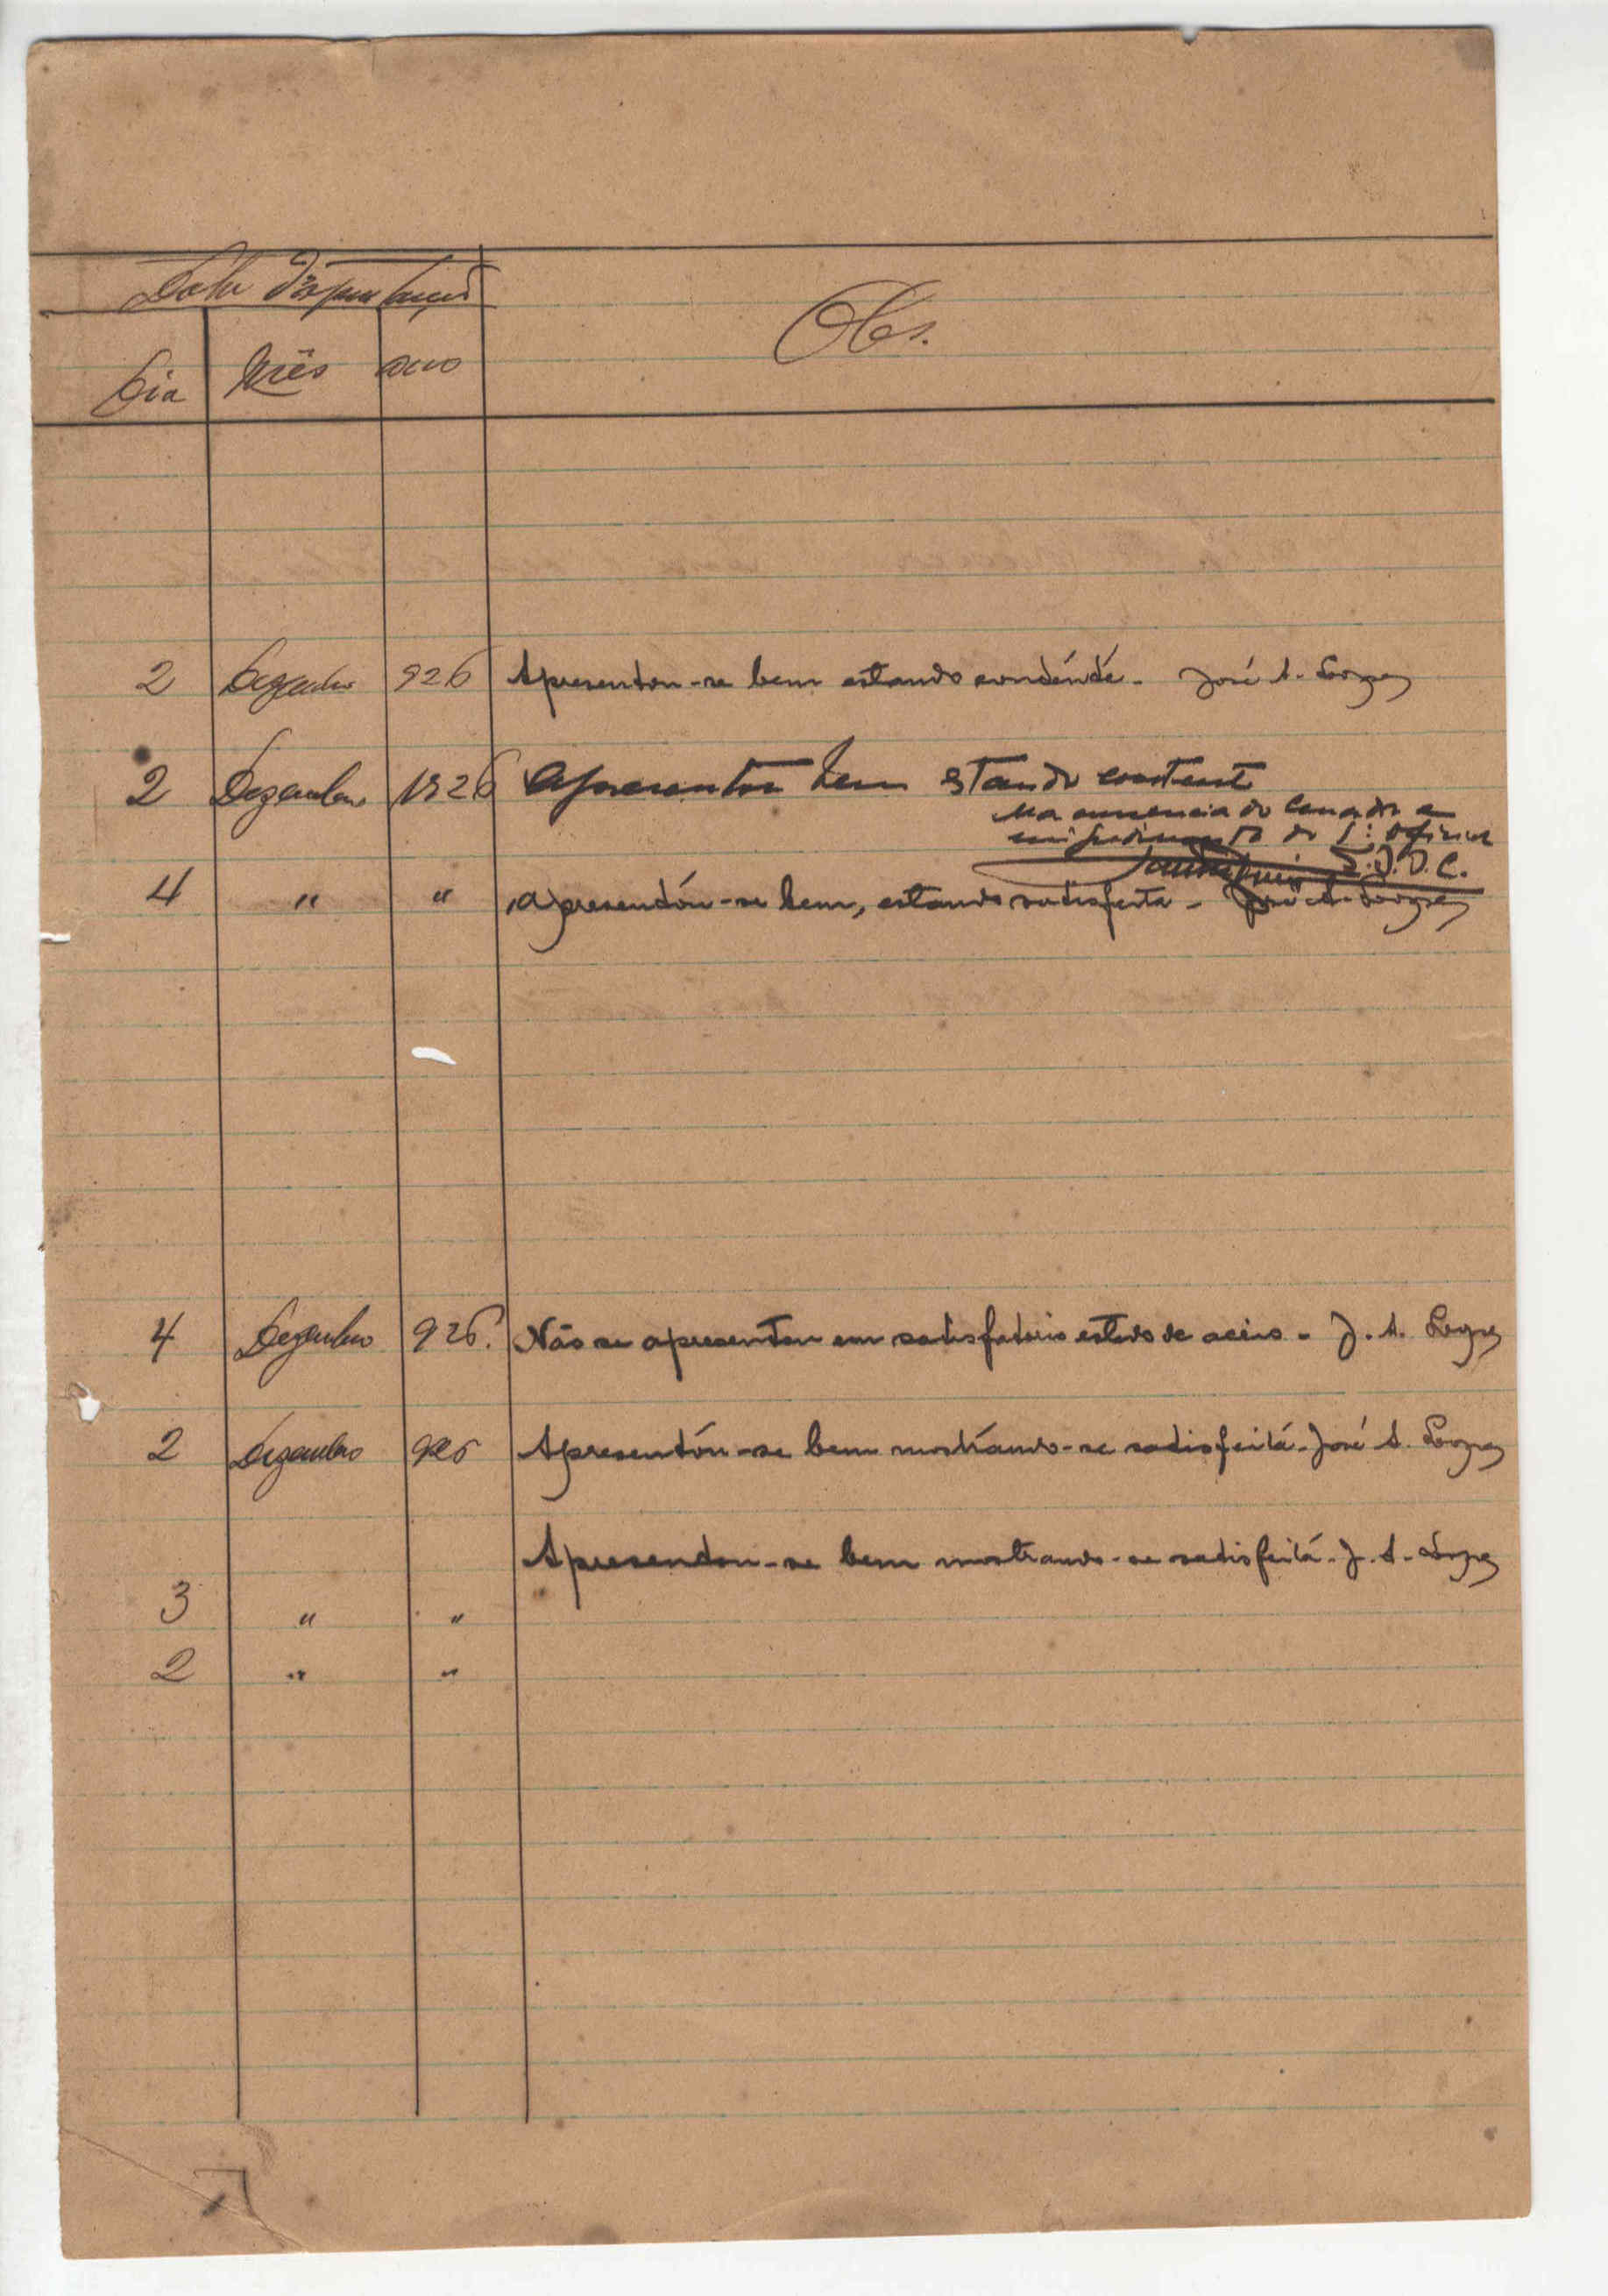 Data d'apresentação
Obs.
Dia Mês ano
2 Dezembro 926 Apresentou-se bem estando contente - José A. Lopes
2 Dezembro 1926 Apresentou bem estando contente
Na ausencia do Comando e
impedimento do 1º Oficial
S.J.D.C.
4 " " Apresentou-se bem, estando satisfeita - José A. Lopes
4 Dezembro 926. Não se apresentou em satisfatorio estado de aceio - J. A. Lopes
2 Dezembro 926 Apresentou-se bem mostrando-se satisfeita - José A. Lopes
Apresentou-se bem mostrando-se satisfeita - J. A. Lopes
3 " "
2 " "